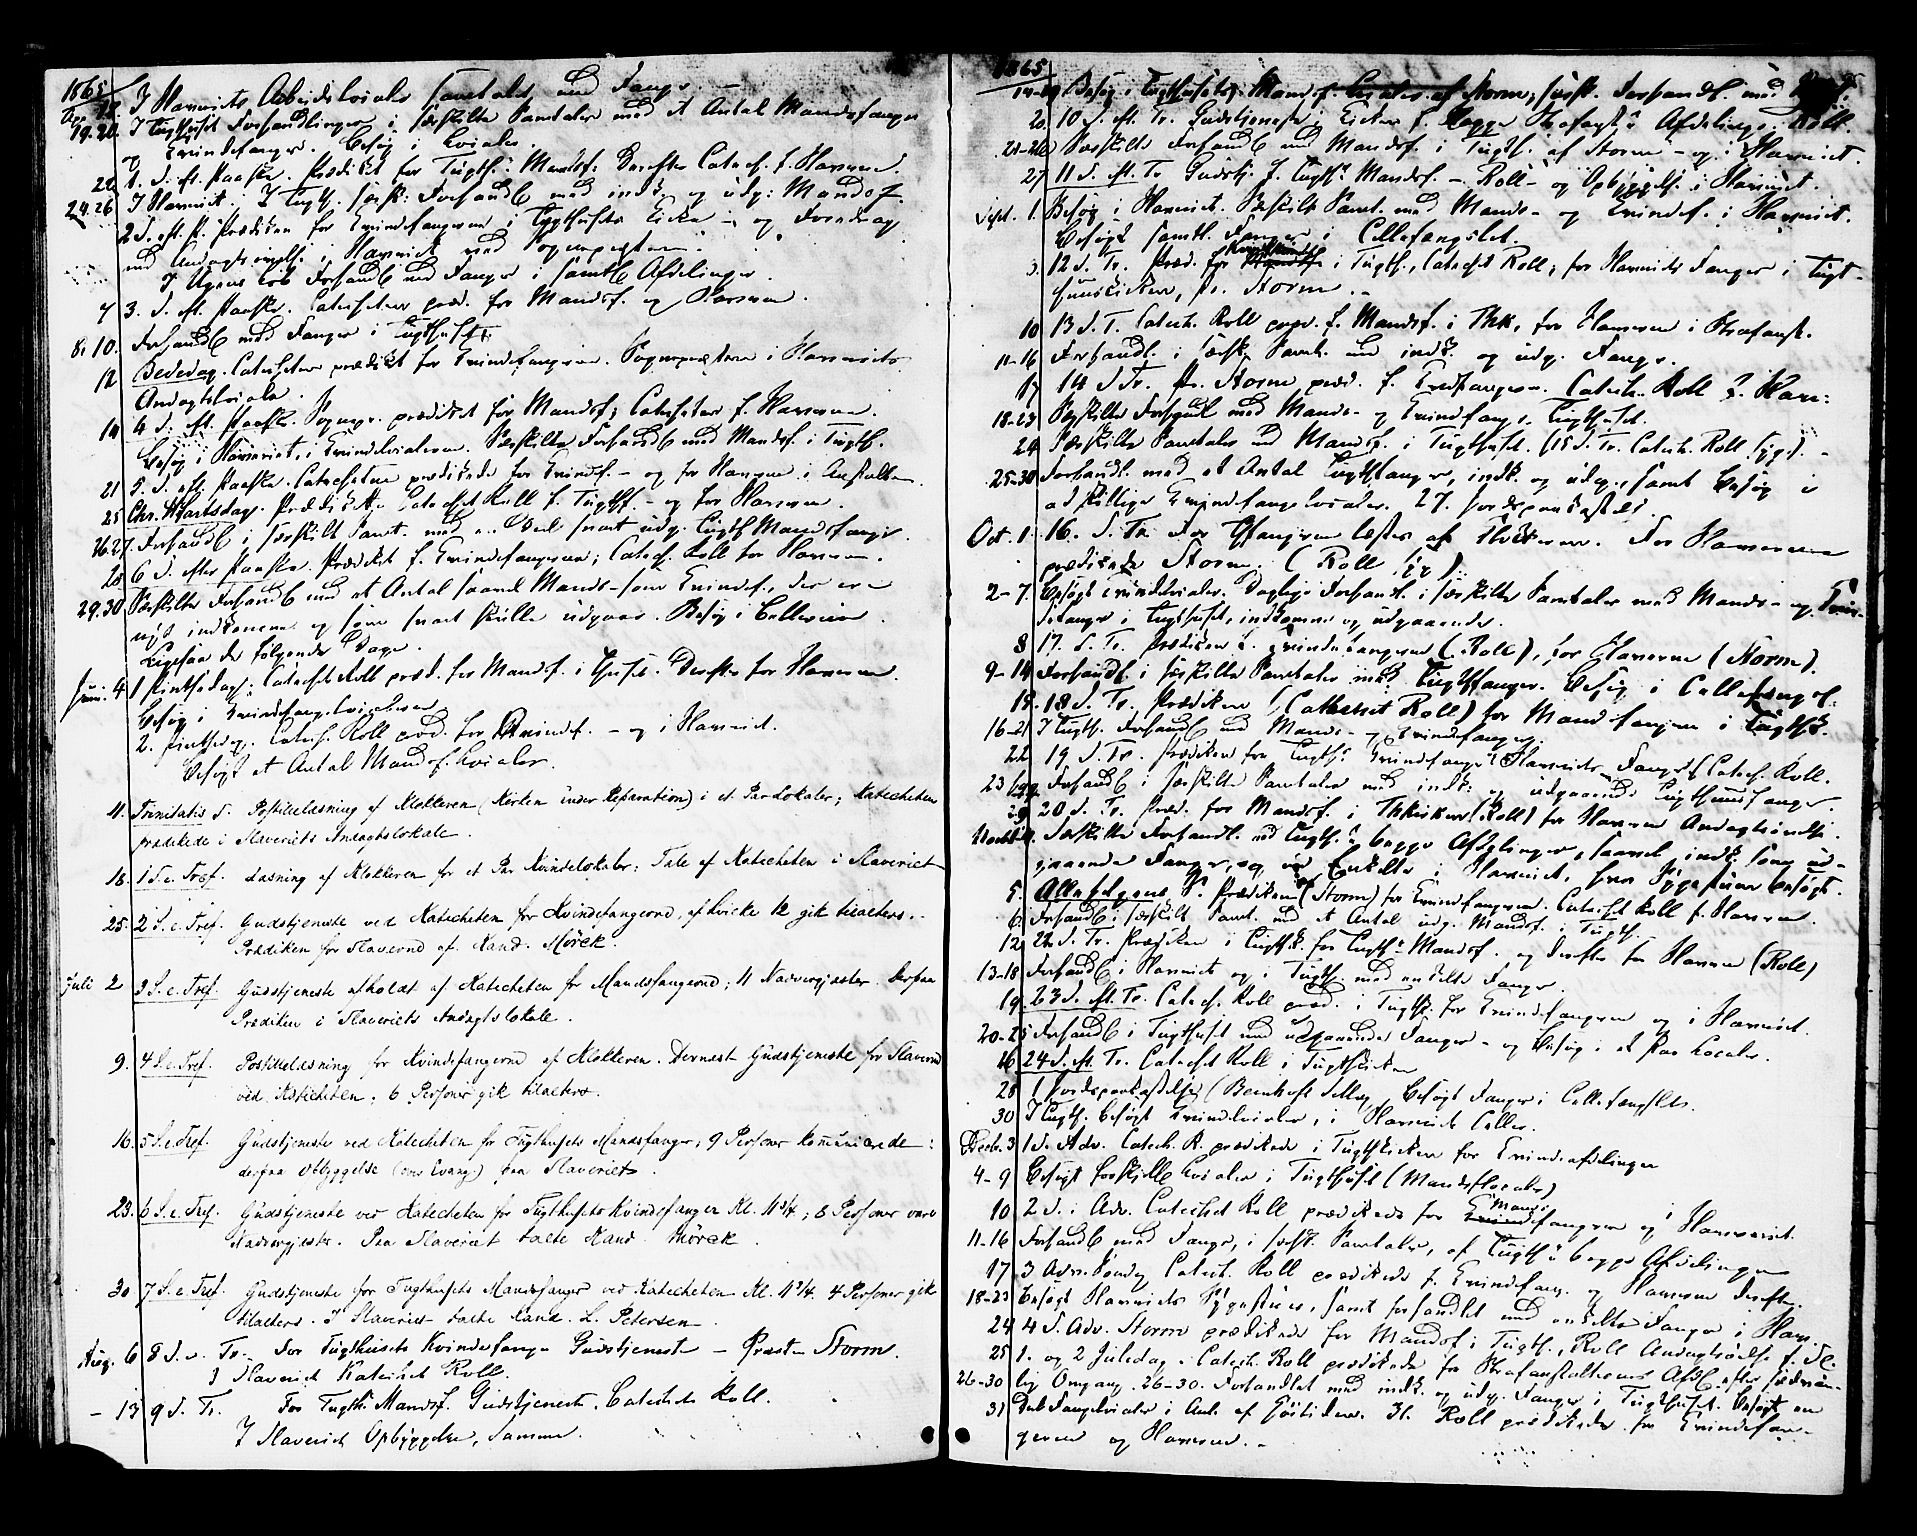 1865
Apr. 18. I Slaveriets Arbeidslocaler Samtaler med Fanger.
19.20. I Tugthuset Forhandlinger i særskilte Samtaler med et Antal Mandsfanger
og Qvindefanger. Besøg i Localer.
22 1. S. eft. Paaske. Prædiket for Tugth.s Mandsf. Derefter Catech. f. Slaverne.
24.26 I Slaveriet. I Tugth. særsk. Forhandl med indk. og udg. Mandsf.
2 S. eft. P. Prædiken for Qvindefangerne i Tugthusets Kirke – og Foredrag
ved Andagtsøvelse i Slaveriet ved Sognepræsten.
I Ugens Løb Forhandl med Fanger i samtl Afdelinger.
7 3. S. eft. Paaske. Catecheten præd. for Mandsf. og Slaverne.
8. 10. Forhandl med Fanger i Tugthuset
12 Bededag. Catecheten prædiket for Qvindefangerne. Sognepræsten i Slaveriets
Andagtslocale.
14 4 S. eft. Paaske. Sognepr. prædiket for Mandsf; Catecheten f. Slaverne.
Besøg i Slaveriet, i Qvindelocalerne. Særskilte Forhandl med Mandsf. i Tugth.
21 5. S. eft. Paaske. Catecheten prædikede for Qvindf. – og for Slaverne i Anstalten.
25 Chr. Hfartsdag. Prædik. Catechet Roll f. Tugthf. – og for Slaverne
26.27. Forhandl i særskilt Samt. med en Deel snart udg. Tugth Mandsfanger.
28 6 S. efter Paaske. Prædiket f. Qvindefangerne; Catech. Roll for Slaverne.
29.30 Særskilte Forhandl med et Antal saavel Mands- som Qvindef., der ere
nys indkomne og som snart skulle udgaae. Besøg i Cellerne
Ligesaa de følgende Dage.
Juni. 4 1 Pintsedag: Catechet Roll præd. for Mandsf. i Thuset. Derefter for Slaverne.
Besøg i Qvindefangelocalerne
2. Pintsedag. Catech. Roll præd. for Qvindef. – og i Slaveriet.
Besøgt et Antal Mandsf. Localer.
11. Trinitatis S. Postillelæsning af Klokkeren (Kirken under Reparation) i et Par Lokaler; Katecheten
prædikede i Slaveriets Andagtslokale.
18. 1 S. e. Tref. Læsning af Klokkeren for et Par Kvindelokaler; Tale af Katecheten i Slaveriet
25. 2 S. e. Tref. Gudstjeneste ved Katecheten for Kvindefangerne, af hvilke 12 gik tilalters.
Prædiken for Slaverne af Kand. Mörck.
Juli 2 3 S. e. Tref. Gudstjeneste afholdt af Katecheten for Mandsfangerne; 11 Nadvergjester. Derpaa
Prædiken i Slaveriets Andagtslokale.
9. 4 S. e. Tref. Postillelæsning for Kvindefangerne af Klokkeren. Dernæst Gudstjeneste for Slaverne
ved Katecheten; 6 Personer gik tilalters.
16. 5 S. e. Tref. Gudstjeneste ved Katecheten for Tugthusets Mandsfanger; 9 Personer kommunicerede;
derpaa Opbyggelse (over Evang.) paa Slaveriet.
23. 6 S. e. Tref. Gudstjeneste ved Katecheten for Tugthusets Kvindefanger Kl. 11 3/4; 8 Personer vare
Nadvergjester. Paa Slaveriet talte Kand. Mörck.
30 7 S. e. Tref. Gudstjeneste for Tugthusets Mandsfanger ved Katecheten Kl. 11 3/4. 4 Personer gik
tilalters. I Slaveriet talte Kand. L. Petersen.
Aug. 6 8 S. e. Tr. For Tugthusets Kvindefanger Gudstjeneste – Præsten Storm.
I Slaveriet Katechet Roll.
– 13 9 S. Tr. For Tugths Mandsf. Gudstjeneste. Catechet Roll.
I Slaveriet Opbyggelse, Samme.
1865
14-19 Besøg i Tugthusets Mandsf. Localer af Storm; særsk. Forhandl. med
20. 10 S. eft. Tr. Gudstjeneste i Kirken f. begge Strafanst.s Afdelinger. Roll.
21-26 Særskilte Forhandl med Mandsf. i Tugth. af Storm – og i Slaveriet.
27 11 S. eft. Tr. Gudstj. f. Tugth.s Mandsf. – Roll – og Opbyggels. i Slaveriet.
Sept. 1. Besøg i Slaveriet. Særskilt Samt. med Mands- og Qvindef. i Slaveriet.
Besøgt samtl. Fanger i Cellefængslet.
3. 12 S. Tr. Præd. for Qvindf i Tugth., Catechet Roll; for Slaveriets Fanger i Tugt-
huuskirken, Pr. Storm.
10 13 S. T. Catech. Roll præd. f. Mandsf. i Thk, for Slaverne i Strafanst.
11-16 Forhandl. i særsk. Samt. med indk. og udg. Fanger.
17 14 S Tr. Pr. Storm præd. f. Qvindfangerne. Catech. Roll f. Slav:
18-23 Særskilte Forhandl med Mands- og Qvindfang. i Tugthuset.
24 Særskilte Samtaler med Mandsf. i Tugthuset. (15 S. Tr. Catech. Roll syg). –
25-30 Forhandl. med et Antal Tugthfanger, indk. og udg., samt Besøg i
adskillige Qvindefangelocaler. 27. Jordspaakastelse.
Oct. 1. 16. S. Tr. For Thfangerne læstes af Klokkeren. For Slaverne
prædikede Storm. (Roll syg)
2-7. Besøgt Qvindelocaler. Daglige Forhandl. i særskilte Samtaler med Mands- og Qvin-
defanger i Tugthuset, indkomne og udgaaende.
8 17. S. Tr. Prædiken f. Qvindefangerne (Roll), for Slaverne (Storm).
9-14 Forhandl. i særskilte Samtaler med Tugthfanger. Besøg i Cellefængsl.
15. 18 S. Tr. Prædiken (Catechet Roll) for Mandsfangerne i Tugthk.
16-21 I Tugth. Forhandl med Mands- og Qvindefanger.
22 19 S. Tr. Prædiken for Tugth.s Qvindefanger & Slaveriets Fanger (Catech. Roll.
23 Forhandl i særskilte Samtaler med indk. og udgaaende Tugthuusfanger.
29 20 S. Tr. Præd. for Mandsf. i Thkirken (Roll) for Slaverne Andagtsøvelse.
Særskilte Forhandl. ved Tugth.s begge Afdelinger, saavel indk. som ud-
gaaende Fanger, og med Enkelte i Slaveriet, hvor Sygestuen besøgt.
5. Allehelgens S. Prædiken (Storm) for Qvindefangerne. Catechet Roll f. Slaverne.
6. Forhandl i særskilt Samt. med et Antal udg. Mandsf. i Tugth.
12 22 S. Tr. Prædiken i Tugthk. for Tugth.s Mandsf. og derefter for Slaverne (Roll)
13-18 Forhandl i Slaveriet og i Tugth. med enkelte Fanger.
19. 23 S. eft. Tr. Catech. Roll præd. i Tugthk. for Qvindefangerne og i Slaveriet.
20-25 Forhandl i Tugthuset med udgaaende Fanger – og Besøg i et Par Localer.
26 24 S. eft. Tr. Catechet Roll i Tugthkirken
28 1 Jordspaakastelse Besøgt Fanger i Cellefængslet.
30 I Tugth. besøgt Qvindelocaler, i Slaveriet Celler.
Decbr. 3 1 S. Adv. Catech. R. prædikede i Tugthkirken for Qvindeafdelingen
4-9 Besøgt forskjell. Localer i Tugthuset (Mandsflocaler)
10 2 S. i Adv. Catechet Roll prædikede for Mandsfangerne og i Slaveriet.
11-16 Forhandl med Fanger, i særsk. Samtaler, af Tugth.s begge Afdelinger
17 3 Adv. Søndag Catech. Roll prædikede f. Qvindefang. og Slaverne derefter.
18-23 Besøgt Slaveriets Sygestuer, samt forhandlet med enkelte Fanger i Slav.
24 4 S. Adv. Storm prædikede for Mandsf. i Tugth., Roll Andagtsøvelse f. Sl.
25 1. og 2 Juledag. Catech. Roll prædikede for Strafanstalternes Afdl. efter sædvan-
26-30 lig Omgang. 26-30. Forhandlet med indk. og udg. Fanger i Tugthuset. Besøgt en
31 Deel Fangelocaler i Anl. af Høitiden. 31. Roll prædikede for Qvindefan-
gerne og Slaverne. –